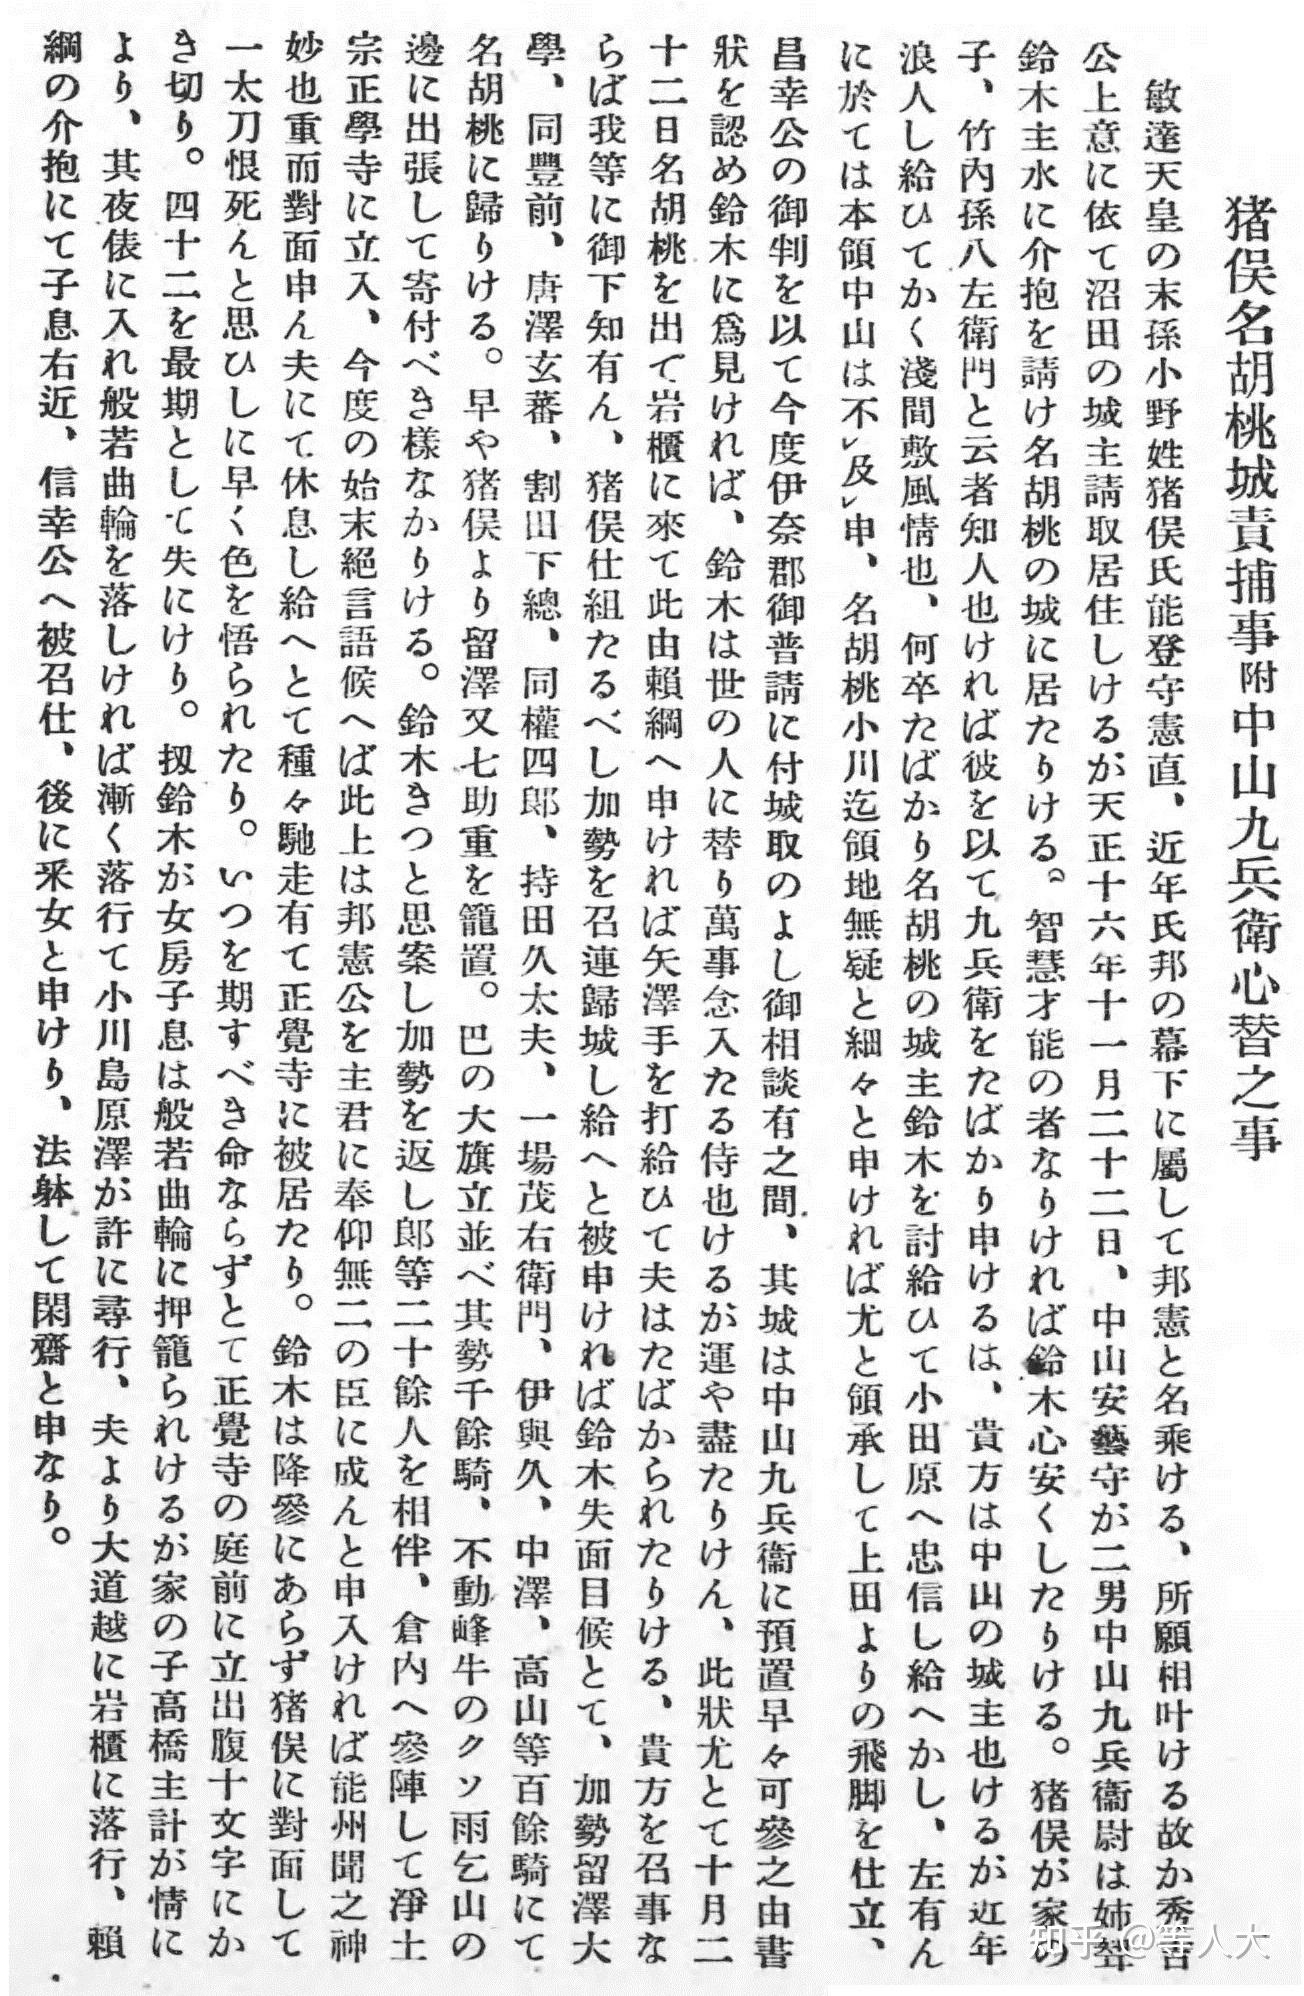 猪俣名胡桃城責捕事附中山九兵衛心替之事
敏達天皇の末孫小野姓猪俣氏能登守憲直、近年氏邦の幕下に屬して邦憲と名乘ける、所願相叶ける故か秀吉
公上意に依て沼田の城主請取居住しけるが天正十六年十一月二十二日、中山安藝守が二男中山九兵衞尉は姉聟
鈴木主水に介抱を請け名胡桃の城に居たりける。智慧才能の者なりければ鈴木心安くしたりける。猪俣が家の
子、竹內孫八左衛門と云者知人也ければ彼を以て九兵衛をたばかり申けるは、貴方は中山の城主也けるが近年
浪人し給ひてかく淺間敷風情也、何卒たばかり名胡桃の城主鈴木を討給ひて小田原へ忠信し給へかし、左有ん
に於ては本領中山は不レ及レ申、名胡桃小川迄領地無疑と細々と申ければ尤と領承して上田よりの飛脚を仕立、
昌幸公の御判を以て今度伊奈郡御普請に付城取のよし御相談有之間、其城は中山九兵衞に預置早々可參之由書
狀を認め鈴木に爲見ければ、鈴木は世の人に替り萬事念入たる侍也けるが運や盡たりけん、此狀尤とて十月二
十二日名胡桃を出て岩櫃に來て此由賴綱へ申ければ矢澤手を打給ひて夫はたばかられたりける、貴方を召事な
らば我等に御下知有ん、猪俣仕組たるべし加勢を召連歸城し給へと被申ければ鈴木失面目候とて、加勢留澤大
學、同豐前、唐澤玄蕃、割田下總、同權四郎、持田久太夫、一場茂右衛門、伊與久、中澤、高山等百餘騎にて
名胡桃に歸りける。早や猪俣より留澤又七助重を籠置。巴の大旗立並べ其勢千餘騎、不動峰牛のクソ雨乞山の
邊に出張して寄付べき樣なかりける。鈴木きつと思案し加勢を返し郎等二十餘人を相伴、倉內へ參陣して淨土
宗正學寺に立入、今度の始末絕言語候へば此上は邦憲公を主君に奉仰無二の臣に成んと申入ければ能州聞之神
妙也重而對面申ん夫にて休息し給へとて種々馳走有て正覺寺に被居たり。鈴木は降參にあらず猪俣に對面して
一太刀恨死んと思ひしに早く色を悟られたり。いつを期すべき命ならずとて正覺寺の庭前に立出腹十文字にか
き切り。四十二を最期として失にけり。扨鈴木が女房子息は般若曲輪に押籠られけるが家の子高橋主計が情に
より、其夜俵に入れ般若曲輪を落しければ漸く落行て小川島原澤が許に尋行、夫より大道越に岩櫃に落行、賴
綱の介抱にて子息右近、信幸公へ被召仕、後に釆女と申けり、法躰して閑齋と申なり。
知乎 @等人大